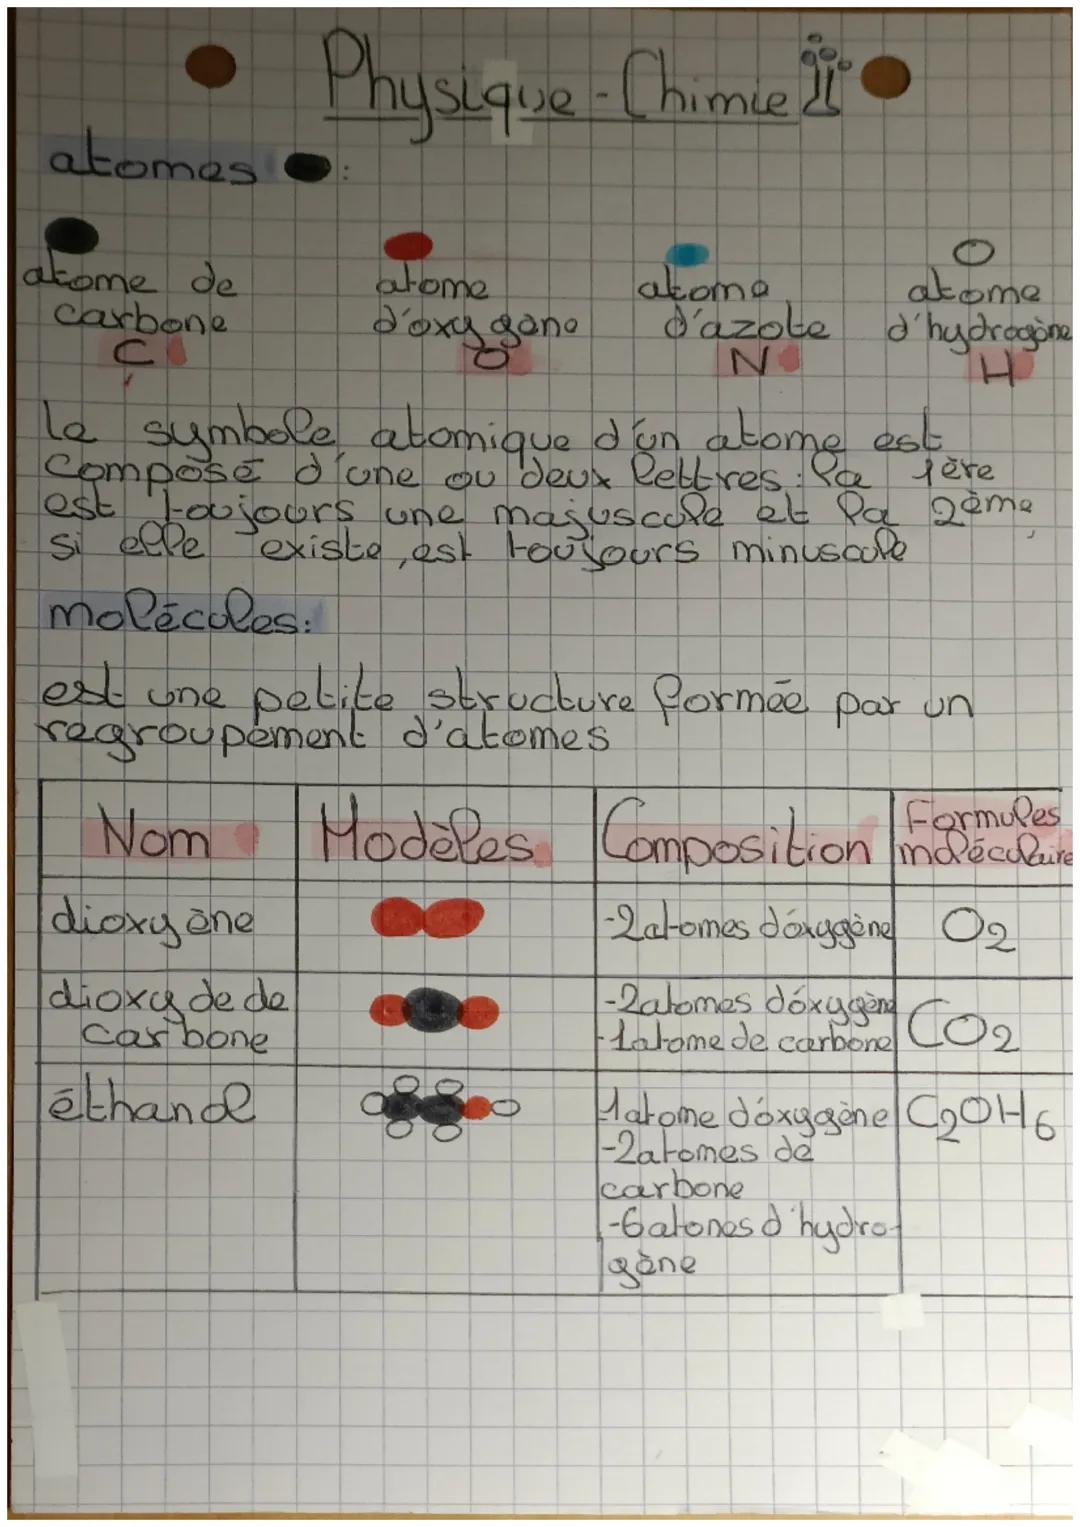 Physique-Chimie
atomes :
atome de
carbone
C
atome
d'oxygène
O
atome
d'azote
N
atome
d'hydrogène
H
Le symbole atomique d'un atome est
composé d'une ou deux lettres : la 1ère
est toujours une majuscule et la 2ème,
si elle existe, est toujours minuscule
molécules:
est une petite structure formée par un
regroupement d'atomes
Nom Modèles Composition Formules
moléculaire
dioxygène -2 atomes d'oxygène O2
dioxyde de
carbone
-2 atomes d'oxygène
-1 atome de carbone
CO2
éthanol
1 atome d'oxygène
-2 atomes de
carbone
-6 atomes d'hydro-
gène
C2OH6